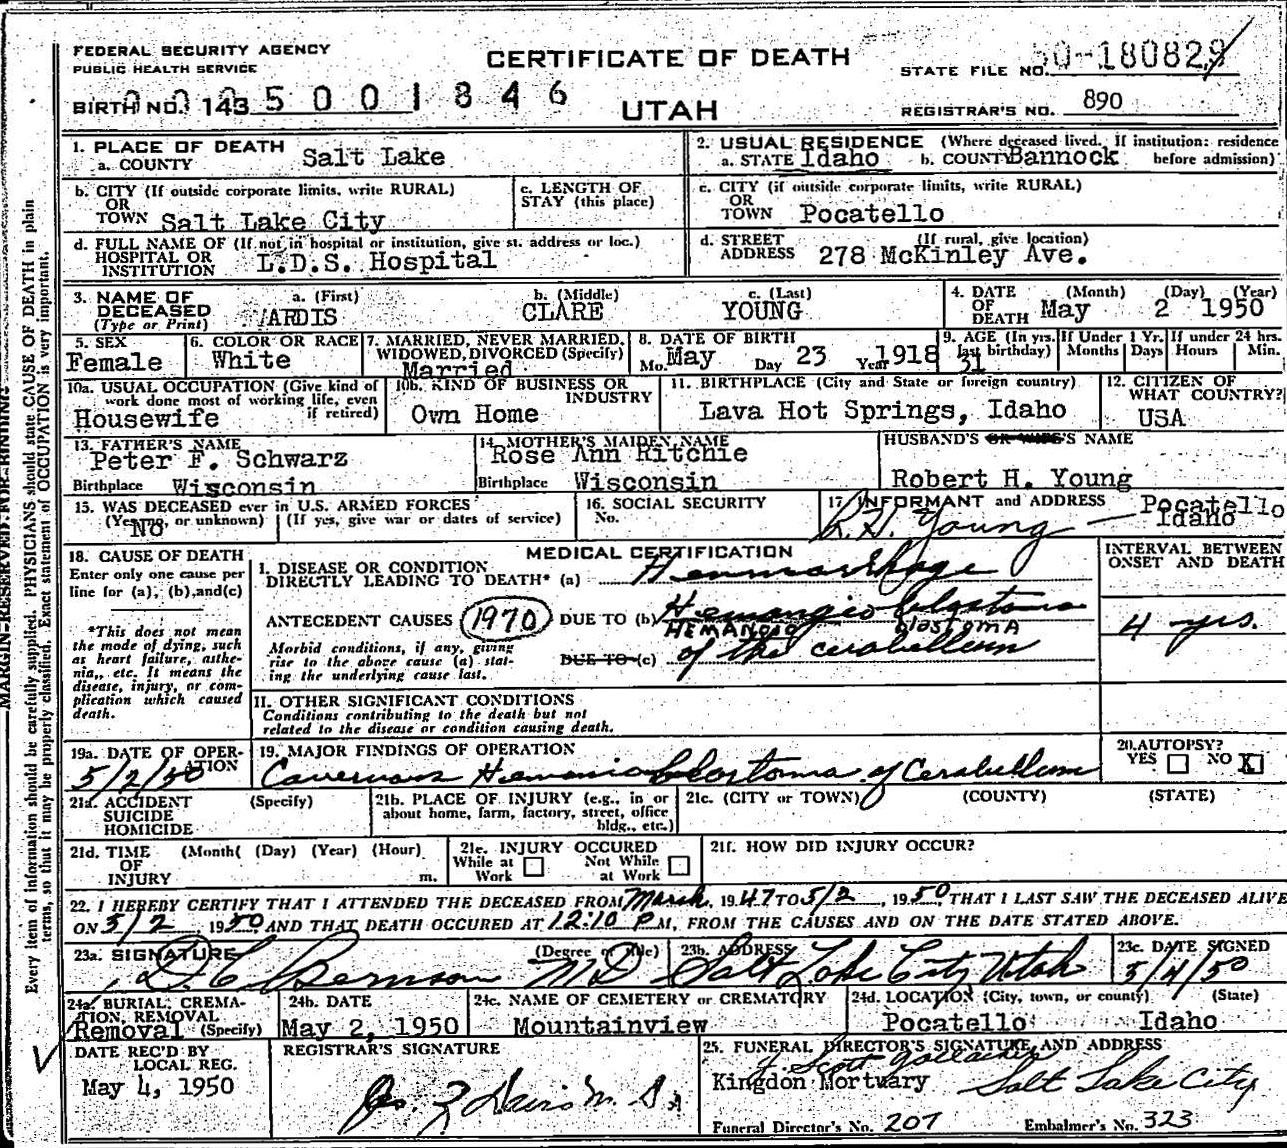 FEDERAL SECURITY AGENCY
PUBLIC HEALTH SERVICE
CERTIFICATE OF DEATH
STATE FILE NO. 50-180829
BIRTH NO. 143 5001846
UTAH
REGISTRAR'S NO. 890
1. PLACE OF DEATH
a. COUNTY Salt Lake
2. USUAL RESIDENCE (Where deceased lived. If institution: residence
a. STATE Idaho b. COUNTY Bannock before admission)
b. CITY (If outside corporate limits, write RURAL)
OR
TOWN Salt Lake City
c. LENGTH OF
STAY (this place)
c. CITY (if outside corporate limits, write RURAL)
OR
TOWN Pocatello
d. FULL NAME OF (If not in hospital or institution, give st. address or loc.)
HOSPITAL OR
INSTITUTION L.D.S. Hospital
d. STREET (If rural, give location)
ADDRESS 278 McKinley Ave.
3. NAME OF
DECEASED
(Type or Print)
a. (First)
ARDIS
b. (Middle)
CLARE
c. (Last)
YOUNG
4. DATE (Month) (Day) (Year)
OF
DEATH May 2 1950
5. SEX
Female
6. COLOR OR RACE
White
7. MARRIED, NEVER MARRIED,
WIDOWED, DIVORCED (Specify)
Married
8. DATE OF BIRTH
Mo. May Day 23 Year 1918
9. AGE (In yrs.
last birthday)
31
If Under 1 Yr.
Months Days
If under 24 hrs.
Hours Min.
10a. USUAL OCCUPATION (Give kind of
work done most of working life, even
if retired)
Housewife
10b. KIND OF BUSINESS OR
INDUSTRY
Own Home
11. BIRTHPLACE (City and State or foreign country)
Lava Hot Springs, Idaho
12. CITIZEN OF
WHAT COUNTRY?
USA
13. FATHER'S NAME
Peter F. Schwarz
Birthplace Wisconsin
14. MOTHER'S MAIDEN NAME
Rose Ann Ritchie
Birthplace Wisconsin
HUSBAND'S OR WIFE'S NAME
Robert H. Young
15. WAS DECEASED ever in U.S. ARMED FORCES
(Yes, no, or unknown) (If yes, give war or dates of service)
No
16. SOCIAL SECURITY
No.
17. INFORMANT and ADDRESS
R.H. Young — Pocatello
Idaho
18. CAUSE OF DEATH
Enter only one cause per
line for (a), (b), and (c)
*This does not mean
the mode of dying, such
as heart failure, asthe-
nia,, etc. It means the
disease, injury, or com-
plication which caused
death.
MEDICAL CERTIFICATION
I. DISEASE OR CONDITION
DIRECTLY LEADING TO DEATH* (a) Hemmorrhage
ANTECEDENT CAUSES 1970 DUE TO (b) Hemangio blastoma
HEMANGIO blastomA
Morbid conditions, if any, giving
rise to the above cause (a) stat-
ing the underlying cause last.
DUE TO (c) of the cerabellum
INTERVAL BETWEEN
ONSET AND DEATH
4 yrs.
II. OTHER SIGNIFICANT CONDITIONS
Conditions contributing to the death but not
related to the disease or condition causing death.
19a. DATE OF OPER-
ATION
5/2/50
19. MAJOR FINDINGS OF OPERATION
Cavernous Hemangioblastoma of Cerabellum
20. AUTOPSY?
YES NO X
21a. ACCIDENT (Specify)
SUICIDE
HOMICIDE
21b. PLACE OF INJURY (e.g., in or
about home, farm, factory, street, office
bldg., etc.)
21c. (CITY or TOWN) (COUNTY) (STATE)
21d. TIME (Month( (Day) (Year) (Hour)
OF
INJURY m.
21e. INJURY OCCURED
While at Work Not While at Work
21f. HOW DID INJURY OCCUR?
22. I HEREBY CERTIFY THAT I ATTENDED THE DECEASED FROM March, 1947 TO 5/2, 1950, THAT I LAST SAW THE DECEASED ALIVE
ON 5/2, 1950 AND THAT DEATH OCCURED AT 12:10 P M, FROM THE CAUSES AND ON THE DATE STATED ABOVE.
23a. SIGNATURE (Degree or title)
D.C. Bernson MD
23b. ADDRESS
Salt Lake City Utah
23c. DATE SIGNED
5/4/50
24a. BURIAL, CREMA-
TION, REMOVAL
Removal (Specify)
24b. DATE
May 2, 1950
24c. NAME OF CEMETERY or CREMATORY
Mountainview
24d. LOCATION (City, town, or county) (State)
Pocatello Idaho
DATE REC'D BY
LOCAL REG.
May 4, 1950
REGISTRAR'S SIGNATURE
25. FUNERAL DIRECTOR'S SIGNATURE AND ADDRESS
Scott Gallacher
Kingdon Mortuary Salt Lake City
Funeral Director's No. 207 Embalmer's No. 323
MARGIN RESERVED FOR BINDING
Every item of information should be carefully supplied. PHYSICIANS should state CAUSE OF DEATH in plain
terms, so that it may be properly classified. Exact statement of OCCUPATION is very important.